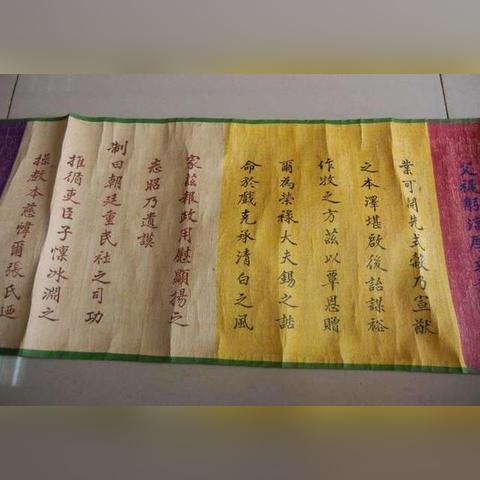 父禔躬淳厚
業可開先式穀乃宣猷
之本澤堪啟後詒謀裕
作牧之方茲以覃恩贈
爾為榮祿大夫錫之誥
命於戲克承清白之風
家茲報政用慰顯揚之
志昭乃遺謨
制曰朝廷重民社之司功
推循吏臣子懍冰淵之
操教本慈幃爾張氏迺